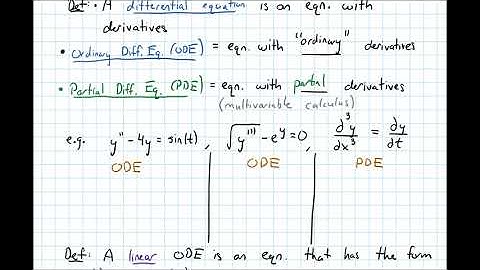 Def: • A differential equation is an eqn. with
derivatives
• Ordinary Diff. Eq. (ODE) = eqn. with "ordinary" derivatives
• Partial Diff. Eq. (PDE) = eqn. with partial derivatives
(multivariable calculus)
e.g. y'' - 4y = sin(t), √y''' - e^y = 0, ∂³y/∂x³ = ∂y/∂t
ODE ODE PDE
Def: A linear ODE is an eqn. that has the form